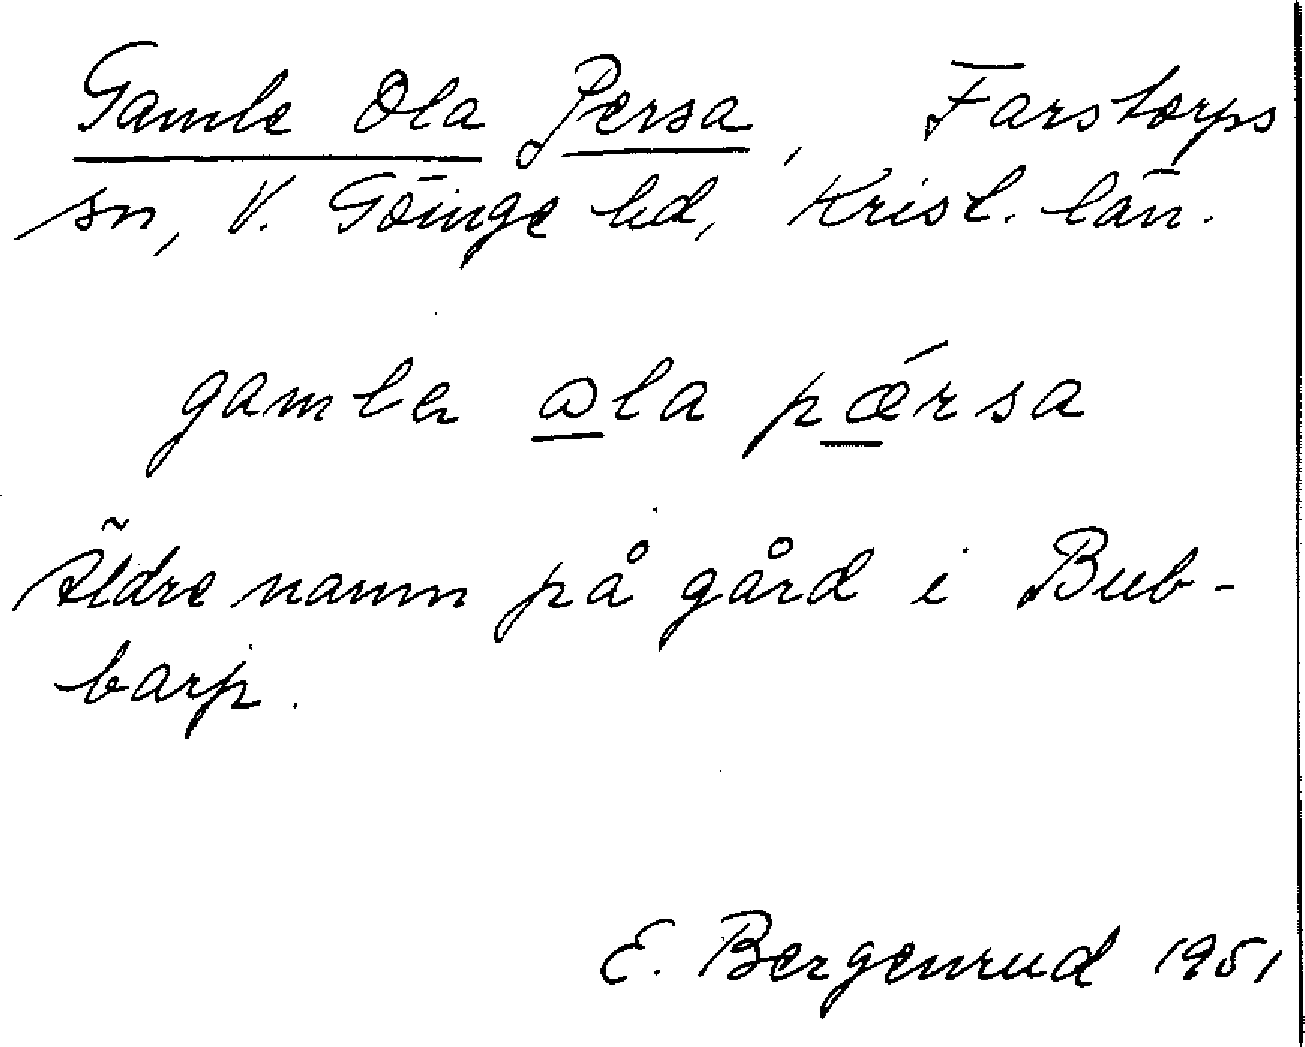 Gamle Ola Persa, Farstorps
sn, V. Göinge hd, Krist. län.
gamla ola pǽrsa
Äldre namn på gård i Bub-
barp.
E. Bergenrud 1951